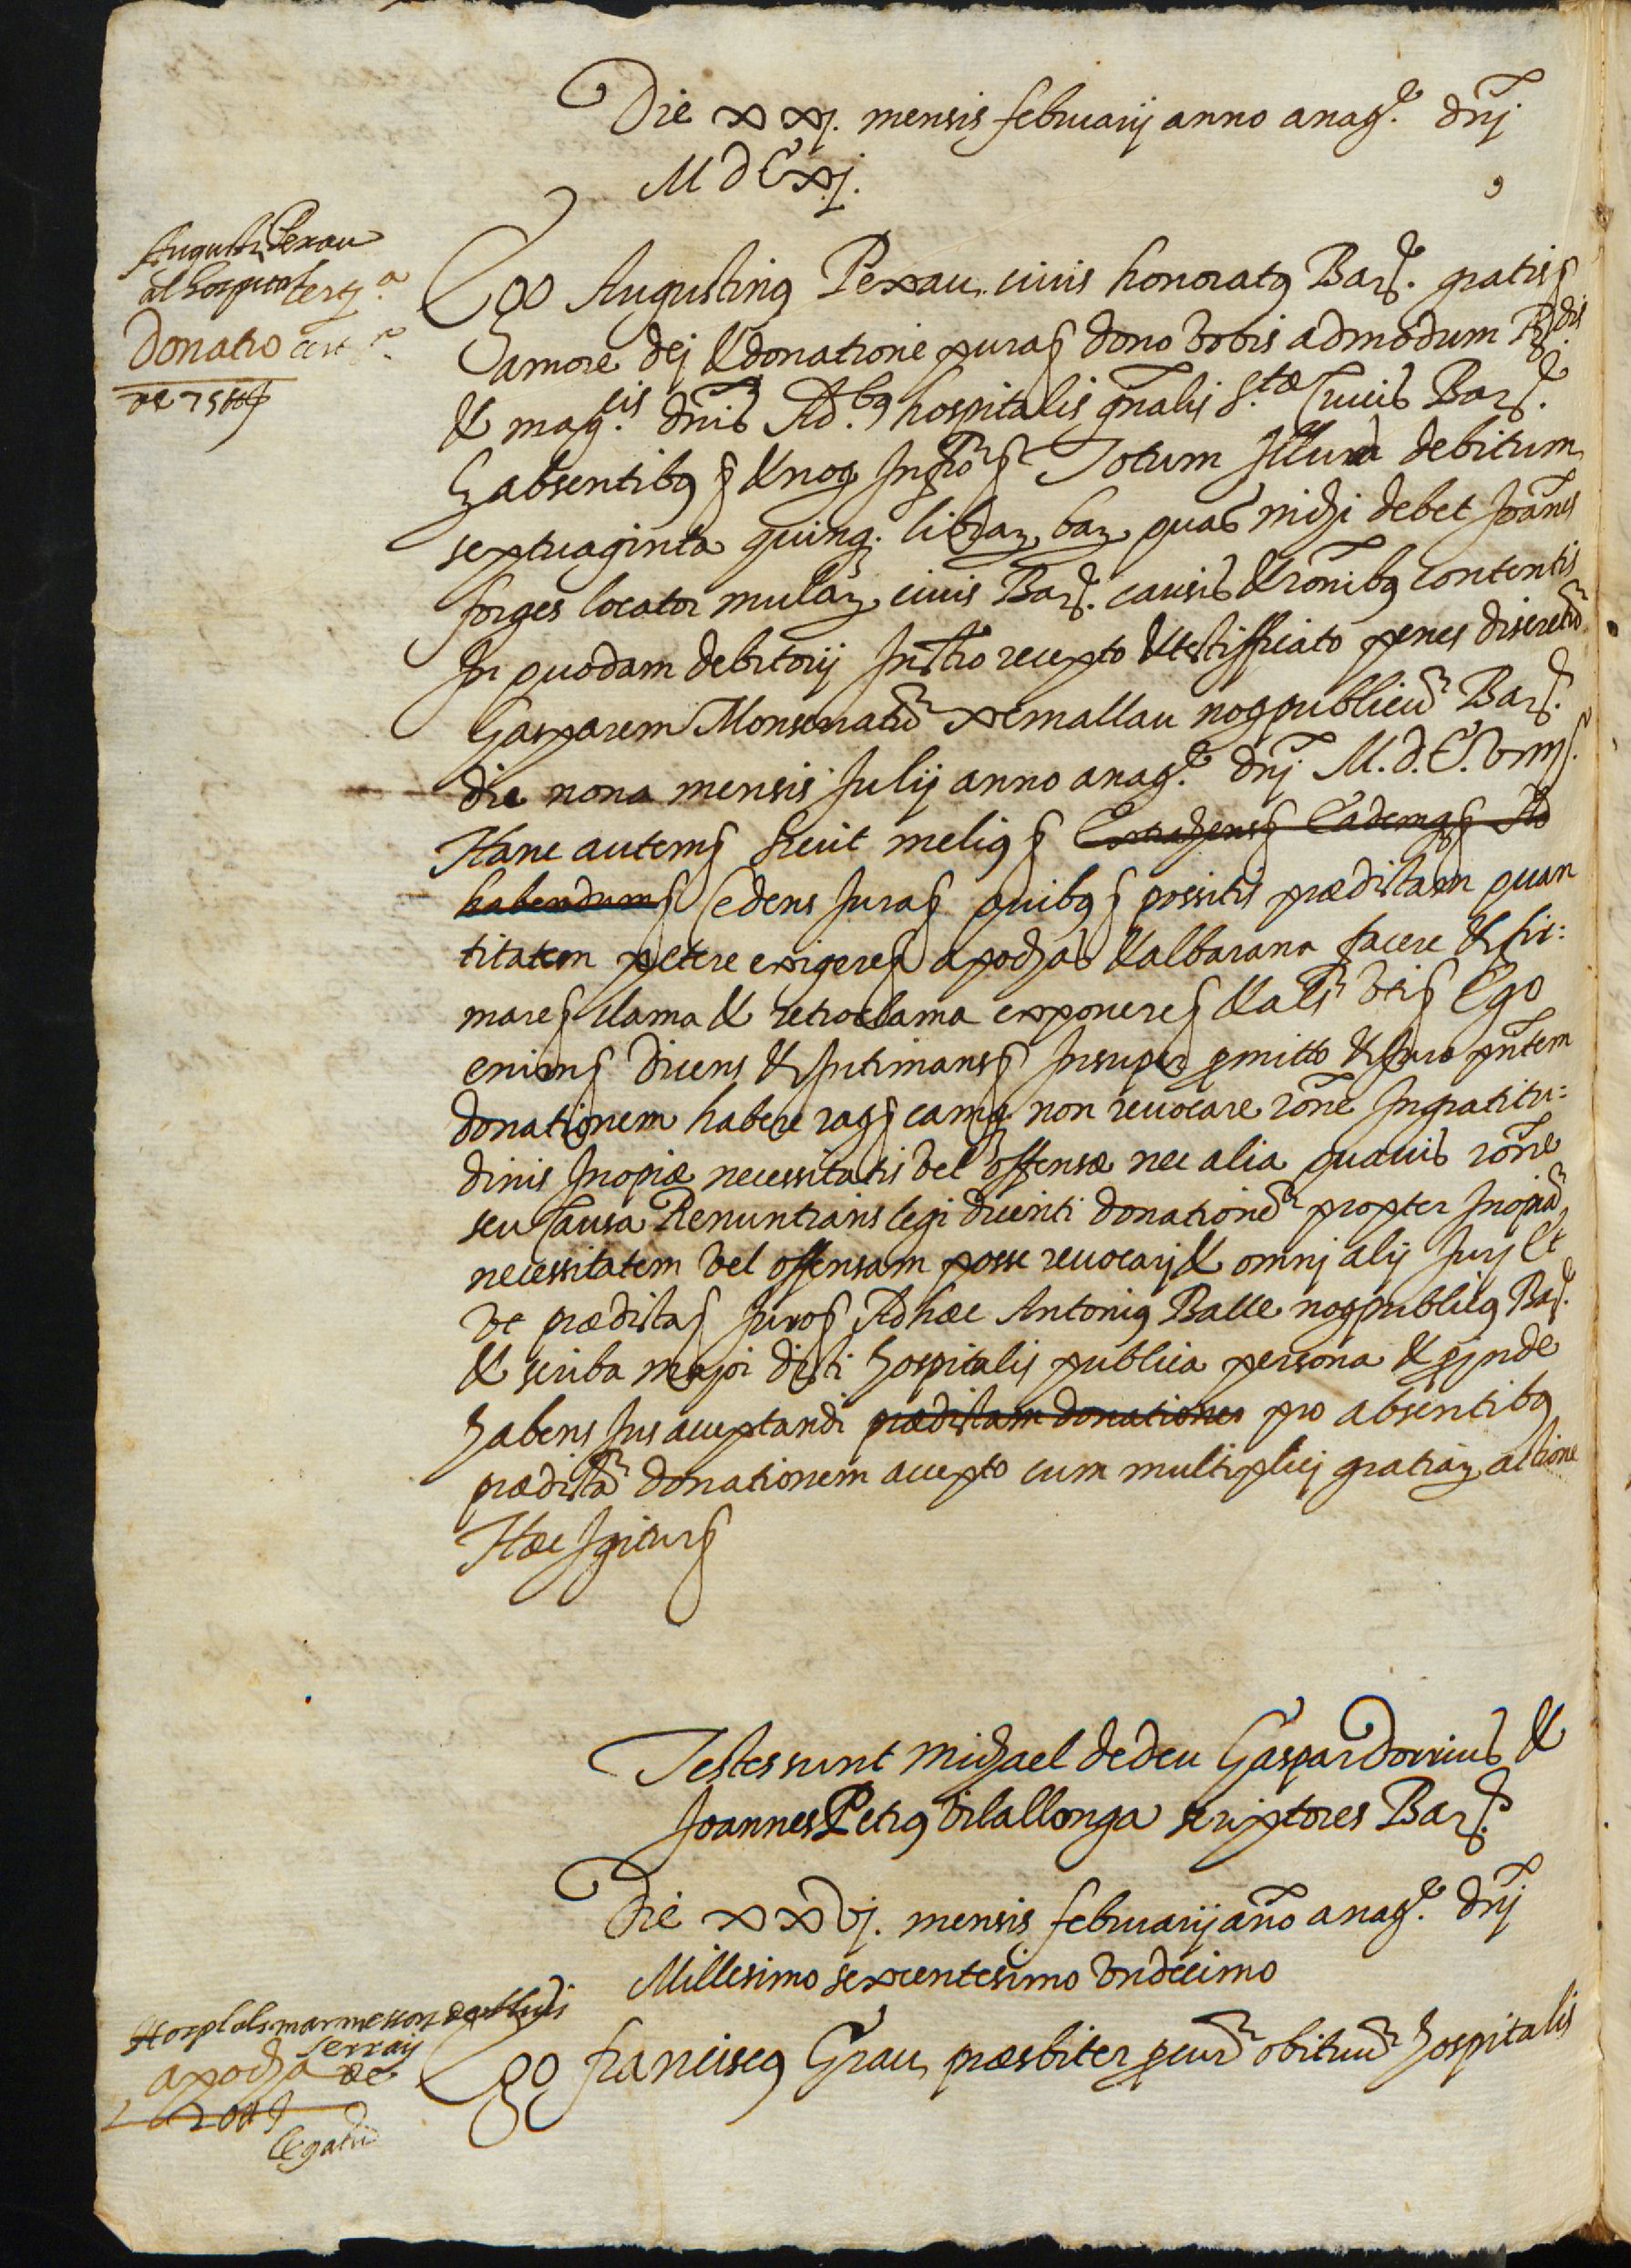 Die xxj. mensis februarij anno anag.e dnj
MdCxj.
Augusti Pexau
al hospital
Donatio
de 75 ll
Ego Augustinq Pexau ciuis honoratq Bar.e gratis
amore dej & donatione pura dono vobis admodum R.dis
& mag.cis dnis Ad.bq hospitalis gnalis S.tæ Crucis Bar.e
absentibq & not. Totum Illud debitum
septuaginta quinq. librar. bar. quas michi debet Joanes
forges locator mular. ciuis Bar.e causis & ronibq contentis
In quodam debitorij Instro recepto & testifficato penes discretu
Gasparem Monserratu xemallau not publicu Bar.e
die nona mensis Julij anno anag.e dnj M.d.C.viiij.
Hanc autem sicut meliq Extrahens Eademq
habendum Cedens Jura quibq possitis prædictam quan
titatem petere exigere apochas & albarana facere & fir:
mare clama & retroclama exponere & als vti Ego
enim Dicens & Intimans Insuper pmitto & Juro pntem
donationem habere ra eamq. non reuocare rone Ingratitu:
dinis Inopiæ necessitatis vel offensæ nec alia quauis rone
seu Causa Renuntians legi dicenti donatione propter Inopia
necessitatem vel offensam posse reuocarj & omnj alij Jurj Et
vt prædicta Juro Ad hæc Antoniq Batle not publicq Bar.e
& scriba major dicti hospitalis publica persona & pinde
habens Jus acceptandi prædictam donationem pro absentibq
prædicta donationem accepto cum multiplicj gratiar. actione
Hæc Igitur
Testes sunt Michael dedeu Gaspar Dorrius &
Joannes Petrq Vilallonga scriptores Bar.e
Die xxvj. mensis februarij ano anag.e dnj
Millesimo sexcentesimo vndecimo
Hospl als marmessors de
Serraÿ
apocha de
20 ll
legatu
Ego franciscq Grau, præsbiter pcur obituu hospitalis